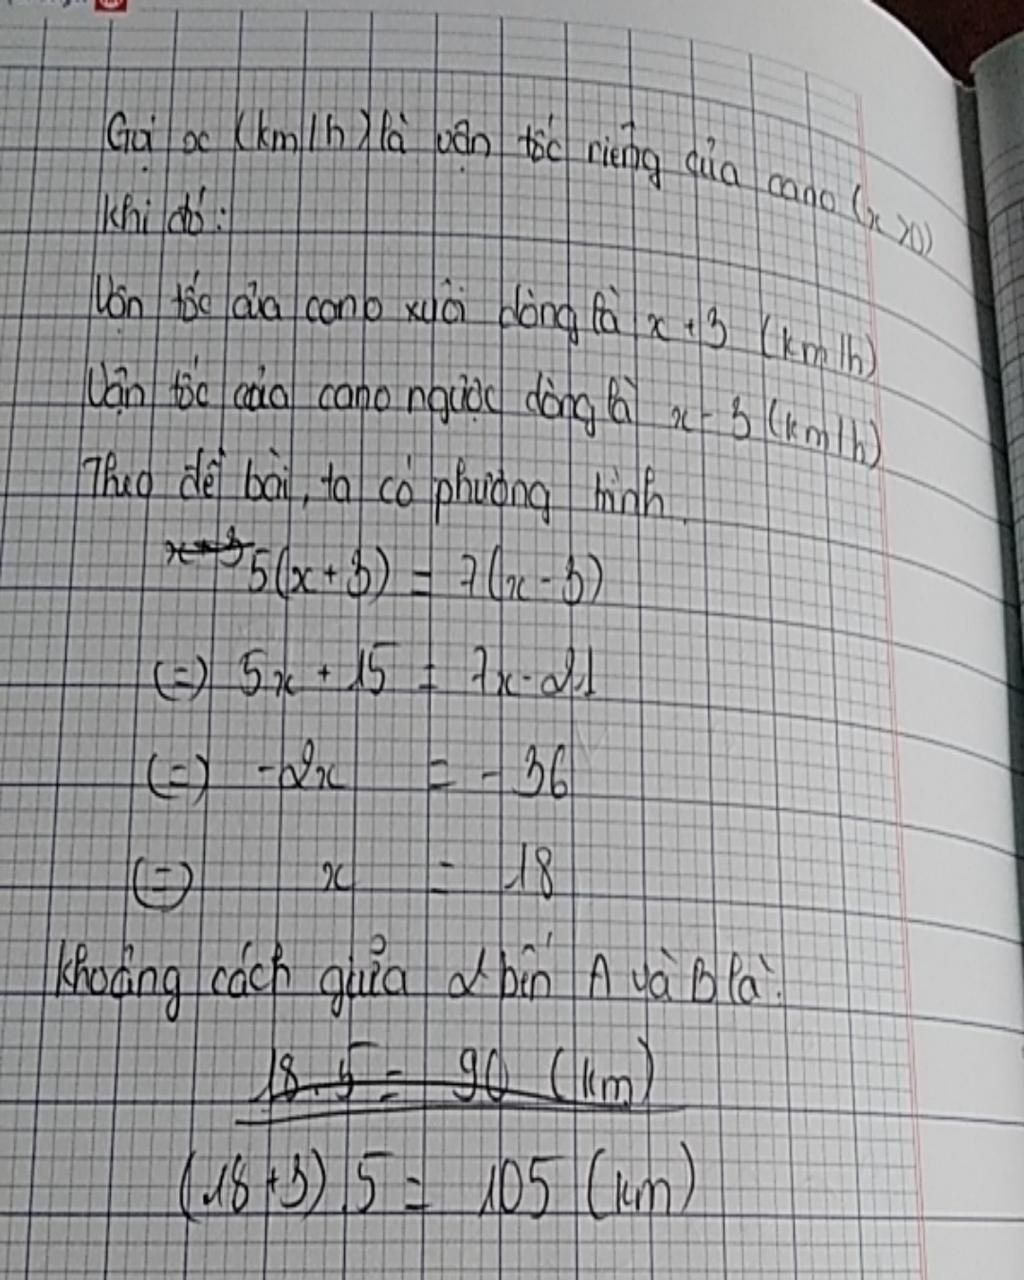 Gọi x (km/h) là vận tốc riêng của cano (x>0)
Khi đó:
Vận tốc của cano xuôi dòng là x + 3 (km/h)
Vận tốc của cano ngược dòng là x - 3 (km/h)
Theo đề bài, ta có phương trình
5(x + 3) = 7(x - 3)
(=) 5x + 15 = 7x - 21
(=) -2x = - 36
(=) x = 18
Khoảng cách giữa 2 bến A và B là:
18.5 = 90 (km)
(18+3).5 = 105 (km)